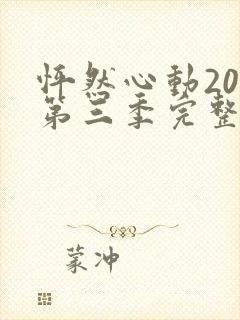 怦然心動20
第三季完整
蒙冲